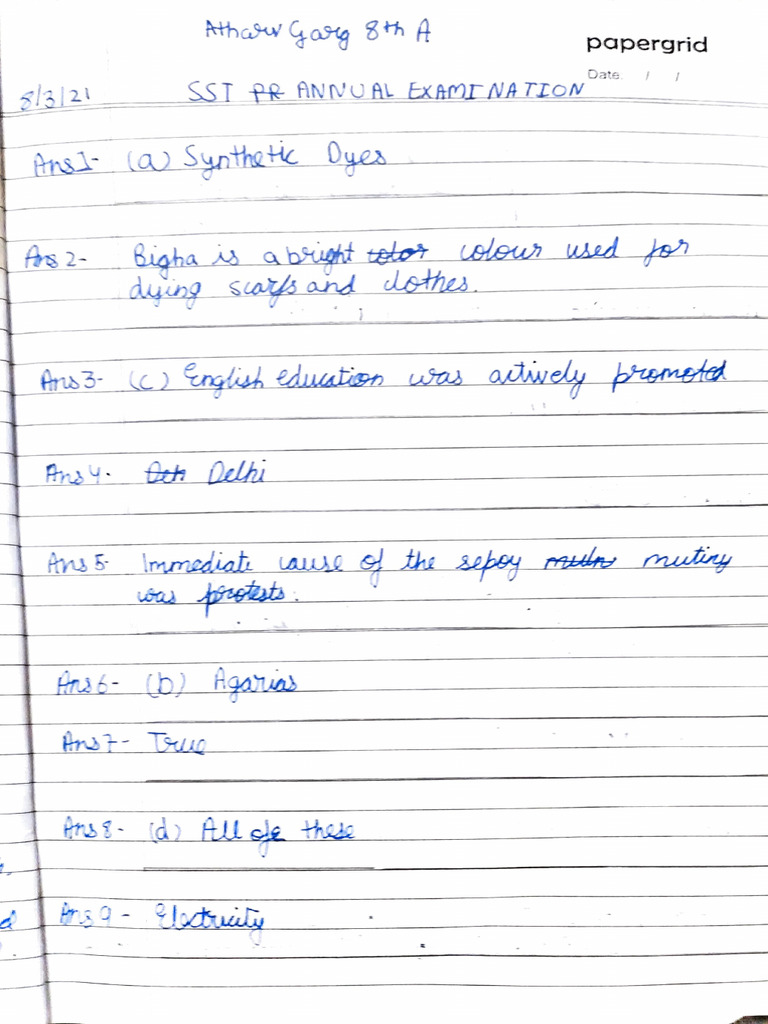 Atharv Garg 8th A
papergrid
Date. / /
8/3/21 SST PR ANNUAL EXAMINATION
Ans1- (a) Synthetic Dyes
Ans 2- Bigha is a bright color colour used for
dying scarfs and clothes.
Ans3- (c) English education was actively promoted
Ans 4. Delhi
Ans 5- Immediate cause of the sepoy mutiny
was protests.
Ans6- (b) Agarias
Ans7- True
Ans8- (d) All of these
Ans9- Electricity